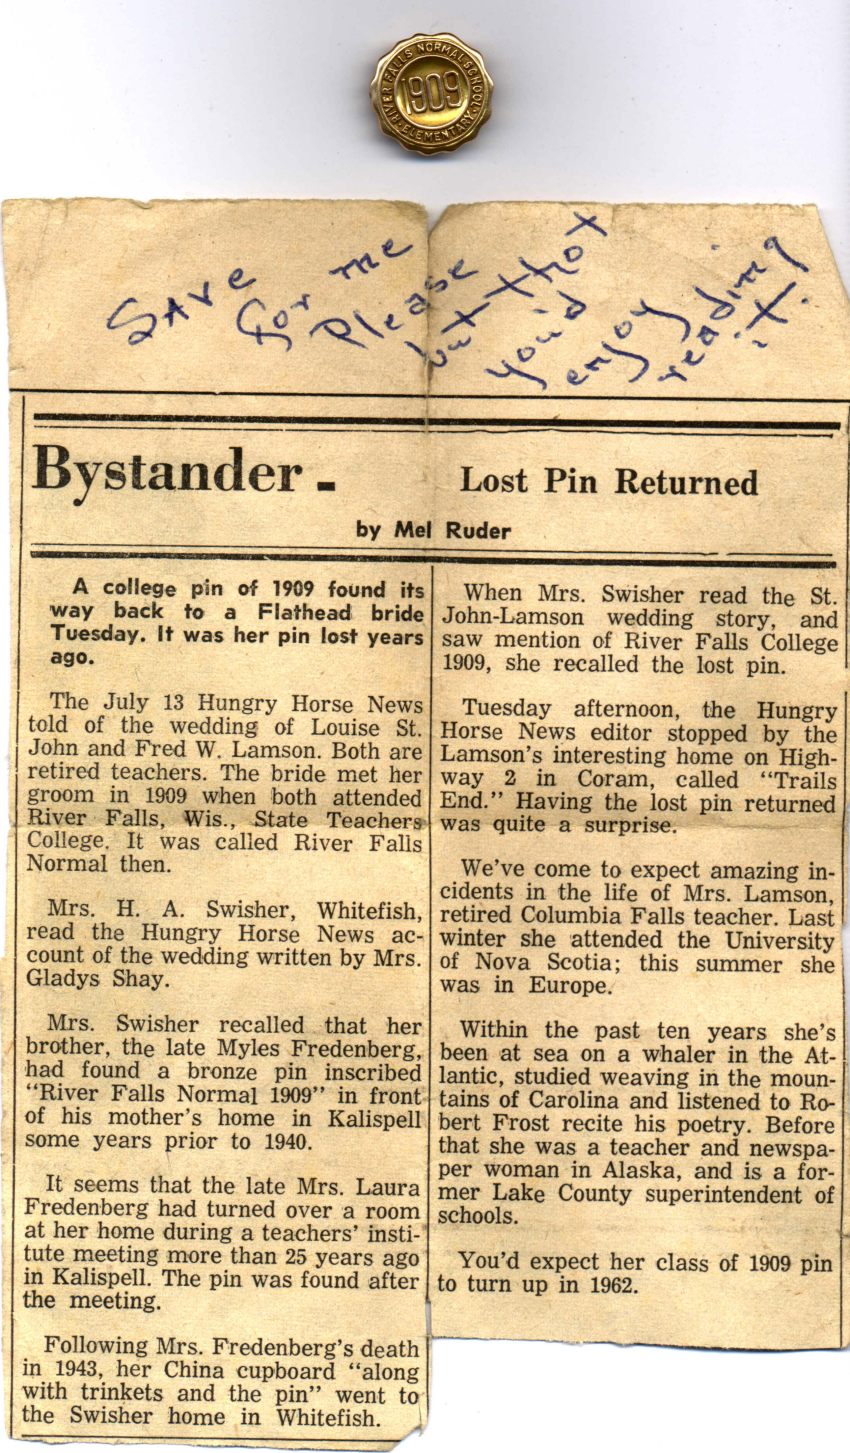 RIVER FALLS NORMAL SCHOOL
1909
ELEMENTARY
Save
for me
Please
but thot
you'd
enjoy
reading
it.
Bystander -
Lost Pin Returned
by Mel Ruder
A college pin of 1909 found its
way back to a Flathead bride
Tuesday. It was her pin lost years
ago.
The July 13 Hungry Horse News
told of the wedding of Louise St.
John and Fred W. Lamson. Both are
retired teachers. The bride met her
groom in 1909 when both attended
River Falls, Wis., State Teachers
College. It was called River Falls
Normal then.
Mrs. H. A. Swisher, Whitefish,
read the Hungry Horse News ac-
count of the wedding written by Mrs.
Gladys Shay.
Mrs. Swisher recalled that her
brother, the late Myles Fredenberg,
had found a bronze pin inscribed
"River Falls Normal 1909" in front
of his mother's home in Kalispell
some years prior to 1940.
It seems that the late Mrs. Laura
Fredenberg had turned over a room
at her home during a teachers' insti-
tute meeting more than 25 years ago
in Kalispell. The pin was found after
the meeting.
Following Mrs. Fredenberg's death
in 1943, her China cupboard "along
with trinkets and the pin" went to
the Swisher home in Whitefish.
When Mrs. Swisher read the St.
John-Lamson wedding story, and
saw mention of River Falls College
1909, she recalled the lost pin.
Tuesday afternoon, the Hungry
Horse News editor stopped by the
Lamson's interesting home on High-
way 2 in Coram, called "Trails
End." Having the lost pin returned
was quite a surprise.
We've come to expect amazing in-
cidents in the life of Mrs. Lamson,
retired Columbia Falls teacher. Last
winter she attended the University
of Nova Scotia; this summer she
was in Europe.
Within the past ten years she's
been at sea on a whaler in the At-
lantic, studied weaving in the moun-
tains of Carolina and listened to Ro-
bert Frost recite his poetry. Before
that she was a teacher and newspa-
per woman in Alaska, and is a for-
mer Lake County superintendent of
schools.
You'd expect her class of 1909 pin
to turn up in 1962.